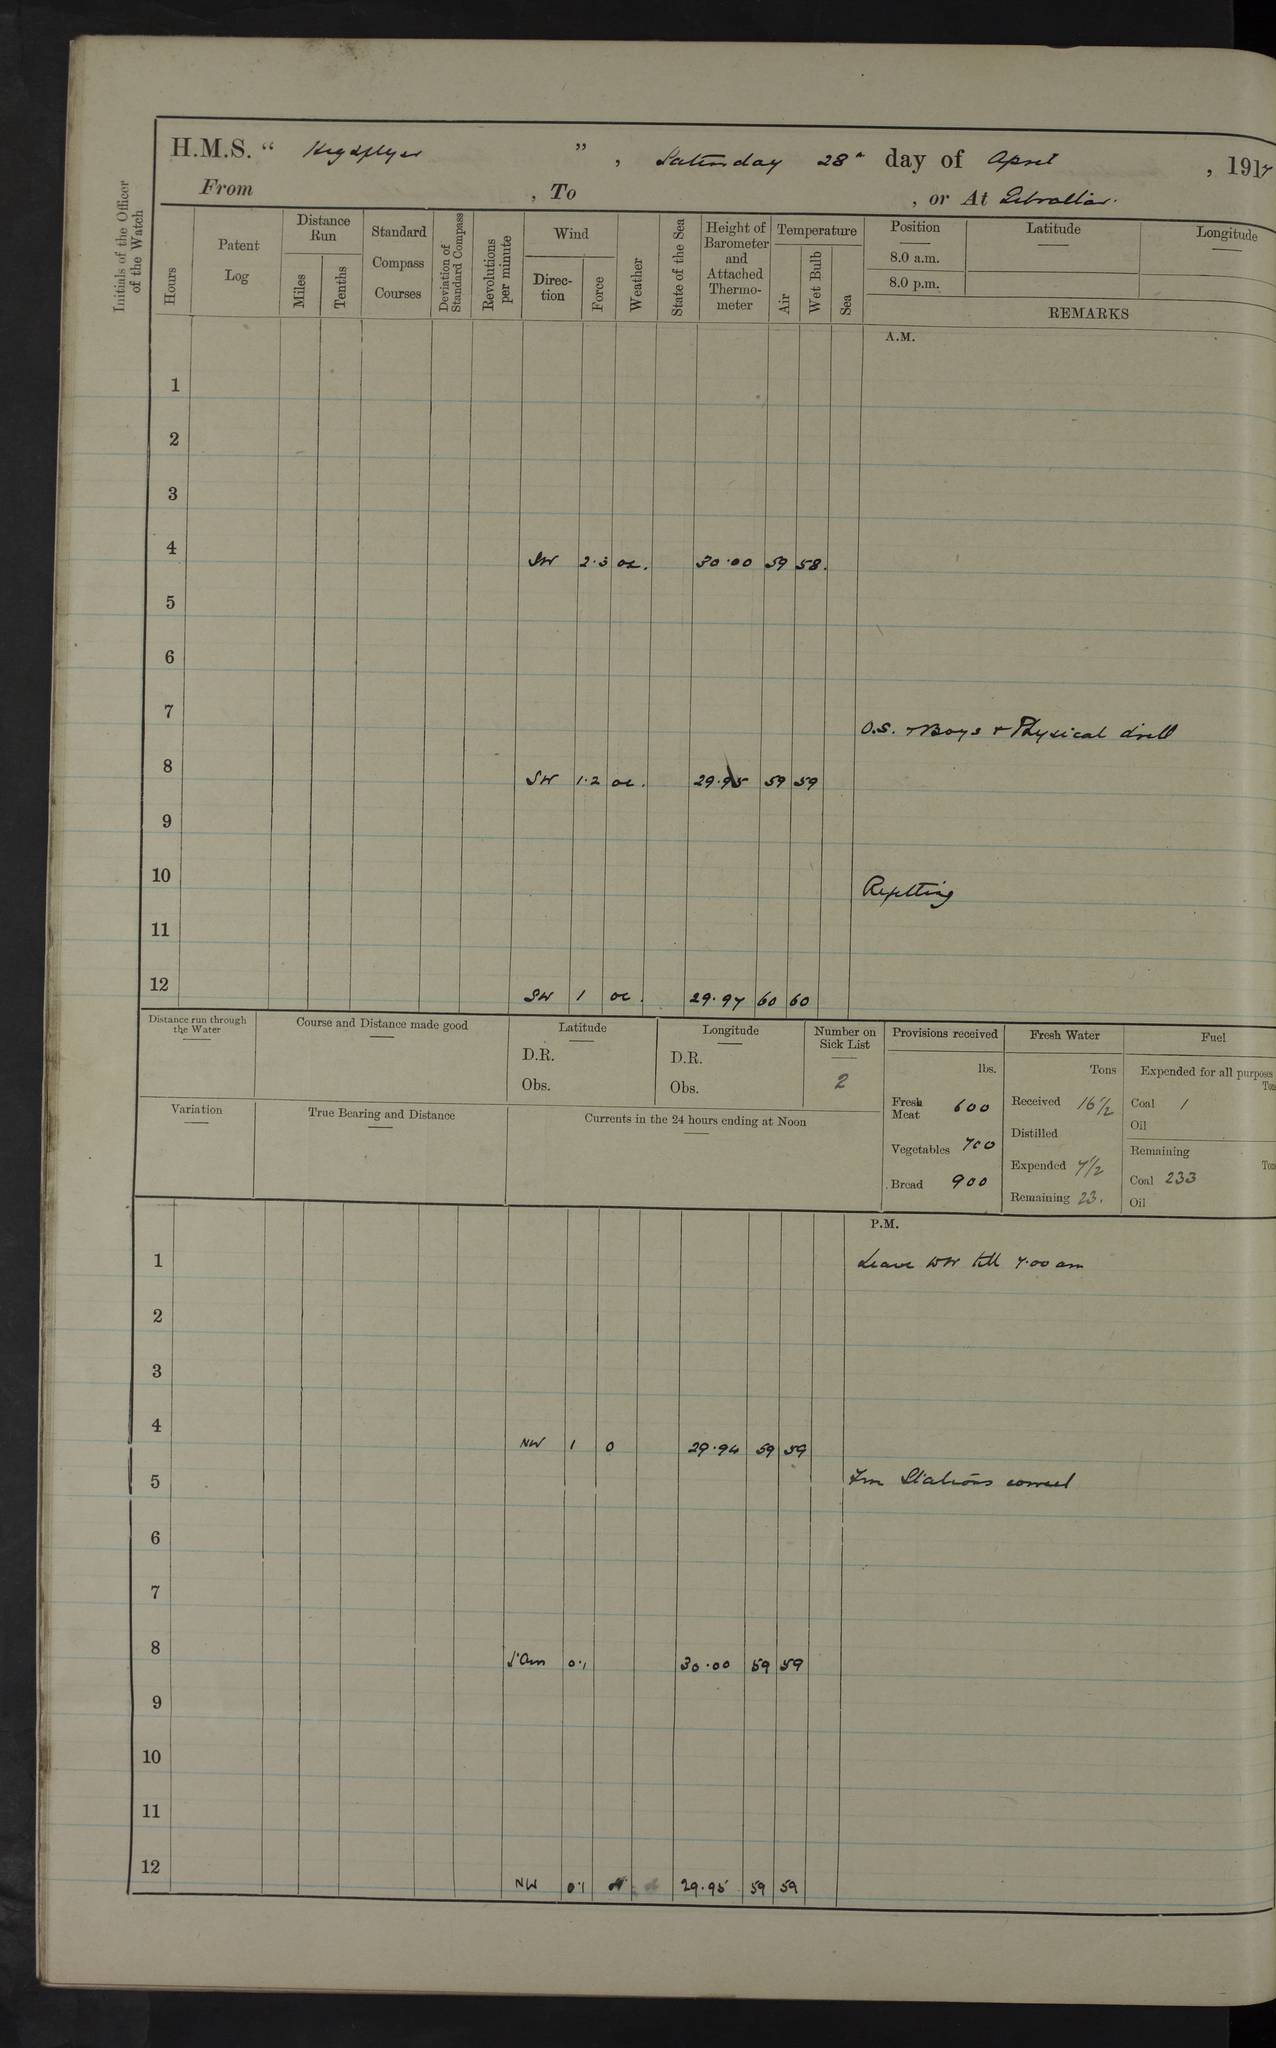 H.M.S. " Highflyer ", Saturday 28th day of April, 1917
From , To , or At Gibraltar.
Initials of the Officer of the Watch
Hours Patent Log Distance Run Miles Tenths Standard Compass Courses Deviation of Standard Compass Revolutions per minute Wind Direction Force Weather State of the Sea Height of Barometer and Attached Thermometer Temperature Air Wet Bulb Sea Position Latitude Longitude
8.0 a.m.
8.0 p.m.
REMARKS
A.M.
1
2
3
4 SW 2.3 oc. 30.00 59 58.
5
6
7
O.S. & Boys & Physical drill
8 SW 1.2 oc. 29.95 59 59
9
10
Refitting
11
12 SW 1 oc. 29.97 60 60
Distance run through the Water Course and Distance made good Latitude Longitude Number on Sick List Provisions received Fresh Water Fuel
D.R. D.R. lbs. Tons Expended for all purposes Tons
Obs. Obs. 2
Variation True Bearing and Distance Currents in the 24 hours ending at Noon
Fresh Meat 600 Received 16½ Coal 1
Distilled Oil
Vegetables 700 Expended 7½ Remaining Tons
Bread 900 Remaining 23. Coal 233
Oil
P.M.
1 Leave WW till 7.00 am
2
3
4 NW 1 o 29.94 59 59
5 Stations correct
6
7
8 0.1 30.00 59 59
9
10
11
12 NW 0.1 29.95 59 59